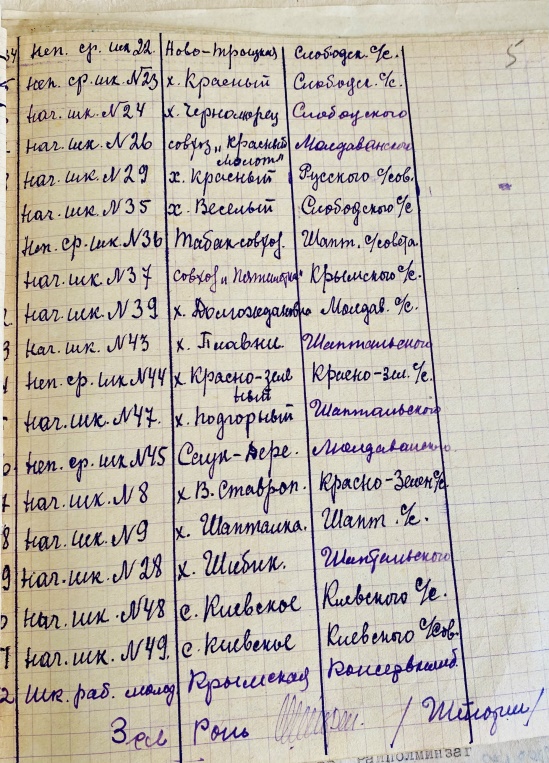 34 Неп. ср. шк 22. Ново-Троцкая Слободск. с/с.
Неп. ср. шк. N23 х. Красный Слободск. с/с.
Нач. шк. N24 х. Черноморец Слободского
Нач. шк. N26 совхоз „Красный Молот" Молдаванского
Нач. шк. N29 х. Красный Русского с/сов.
Нач. шк. N35 х. Веселый Слободского с/с
Неп. ср. шк. N36 Табаксовхоз. Шапт. с/совета.
Нач. шк. N37 совхоз „Пятилетка" Крымского с/с.
2 Нач. шк. N39 х. Долгождановка Молдав. с/с.
3 Нач. шк. N43 х. Плавни Шаптальского
Неп. ср. шк N44 х. Красно-зеле ный Красно-зел. с/с.
Нач. шк. N47. х. Подгорный Шаптальского
Неп. ср. шк N45 Саук-Дере. Молдаванского
7 Нач. шк. N8 х В. Ставроп. Красно-Зелен с/с
8 Нач. шк. N9 х. Шапталка. Шапт с/с.
9 Нач. шк. N28 х. Шибик. Шаптальского
Нач. шк. N48 с. Киевское Киевского с/с.
Нач. шк. N49. с. Киевское Киевского с/сов.
2 Шк. раб. молод Крымская Консервкомб.
Зав Роно
Райполминзаг
5